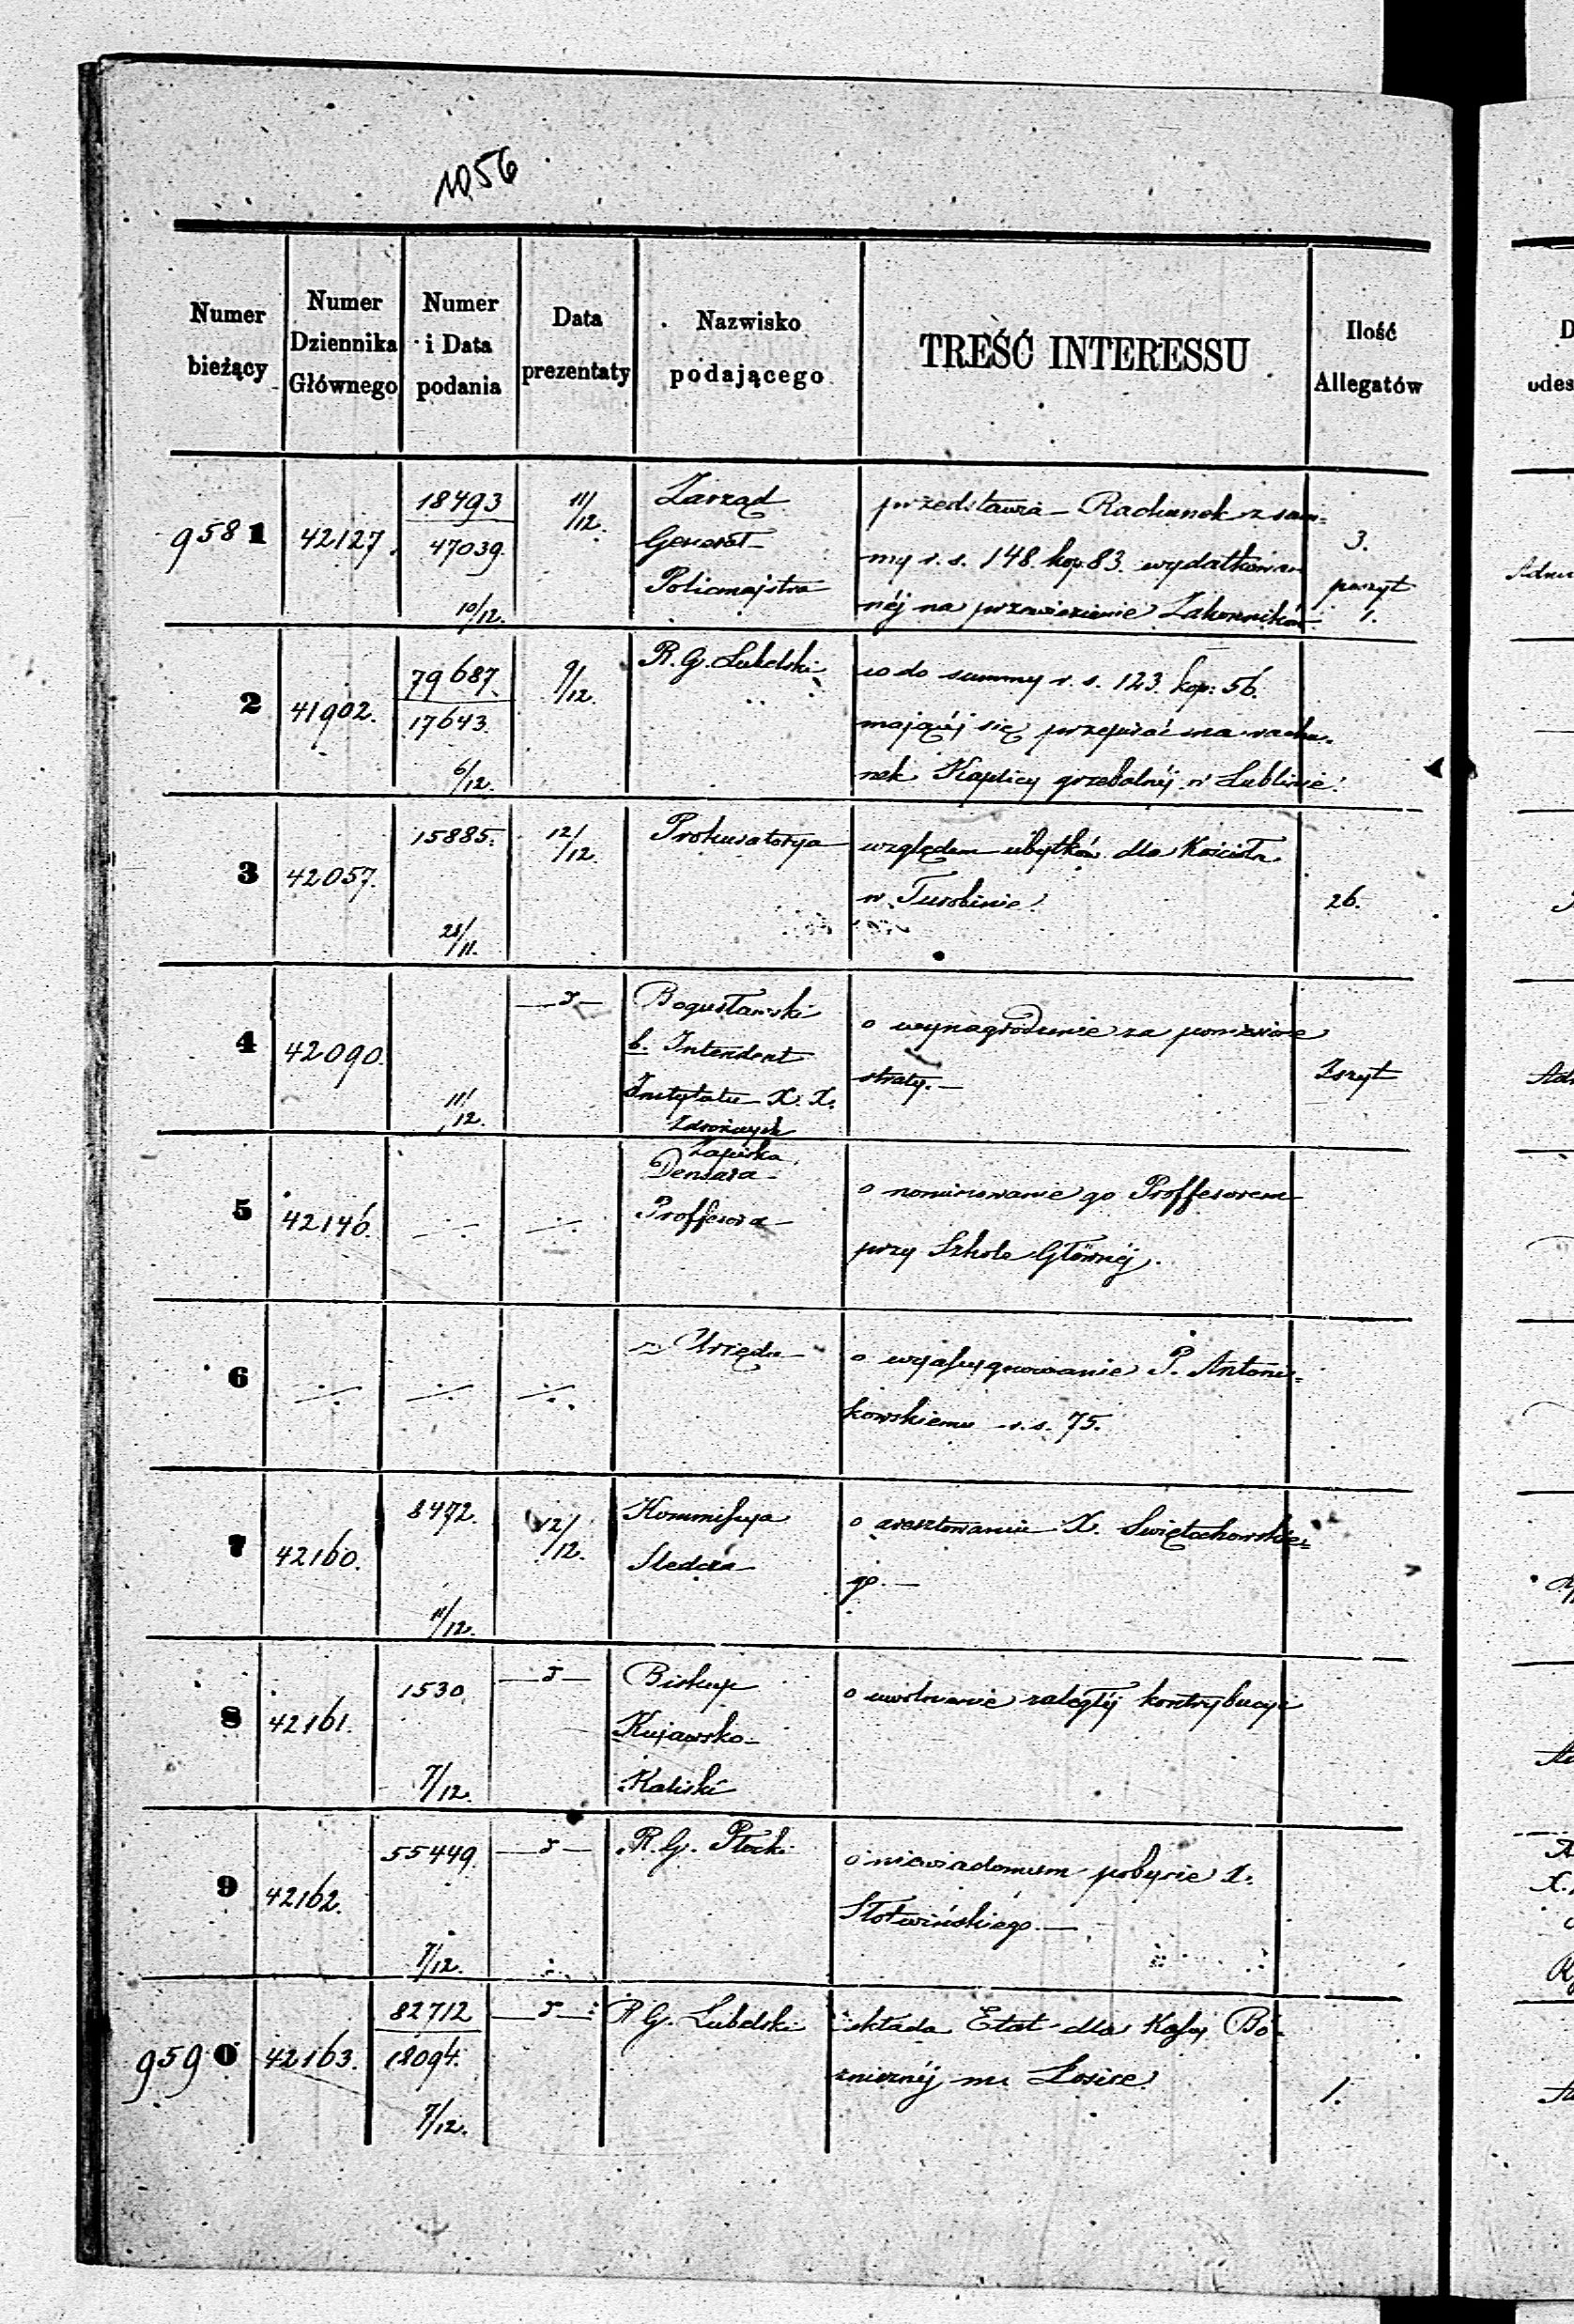 1056
Numer bieżący
Numer Dziennika Głównego
Numer i Data podania
Data prezentaty
Nazwisko podającego
TREŚĆ INTERESSU
Ilość Allegatów
9581
42127.
18493
47039.
10/12.
11/12.
Zarząd
Generał
Policmajstra
przedstawia Rachunek z sum=
my r. s. 148. kop. 83. wydatkowa
néj na przewiezienie Zakonników
3.
poszyt
1.
2
41902.
79687.
17643.
6/12.
9/12.
R. G. Lubelski
co do summy r. s. 123. kop: 56.
mającéj się przepisać na rachu=
nek Kaplicy grzebalnéj w Lublinie.
3
42057.
15885.
28/11.
12/12.
Prokuratorya
względem ubytków dla Kościoła
w Turobinie.
26.
4
42090.
11/12.
Bogusławski
b. Intendent
Instytutu
o wynagrodzenie za poniesione
straty.—
Zszyt
5
42146.
Zapiska
Proffesora
o nominowanie go Proffesorem
przy Szkole Głównéj.
6
z Urzędu
o wyassygnowanie P. Antoni=
kowskiemu r. s. 75.
7
42160.
8472.
11/12.
12/12.
Kommissya
Sledcza
o aresztowaniu X. Swiętochowskie=
go.—
8
42161.
1530
7/12.
Biskup
Kujawsko-
Kaliski
o uwolnienie zaległéj kontrybucyi
9
42162.
55449.
7/12.
R. G. Płocki
o niewiadomem pobycie X.
Słotwińskiego.—
9590
42163.
82712
18094.
7/12.
R. G. Lubelski
składa Etat dla Kassy Bó=
żnicznéj m. Łosice
1.